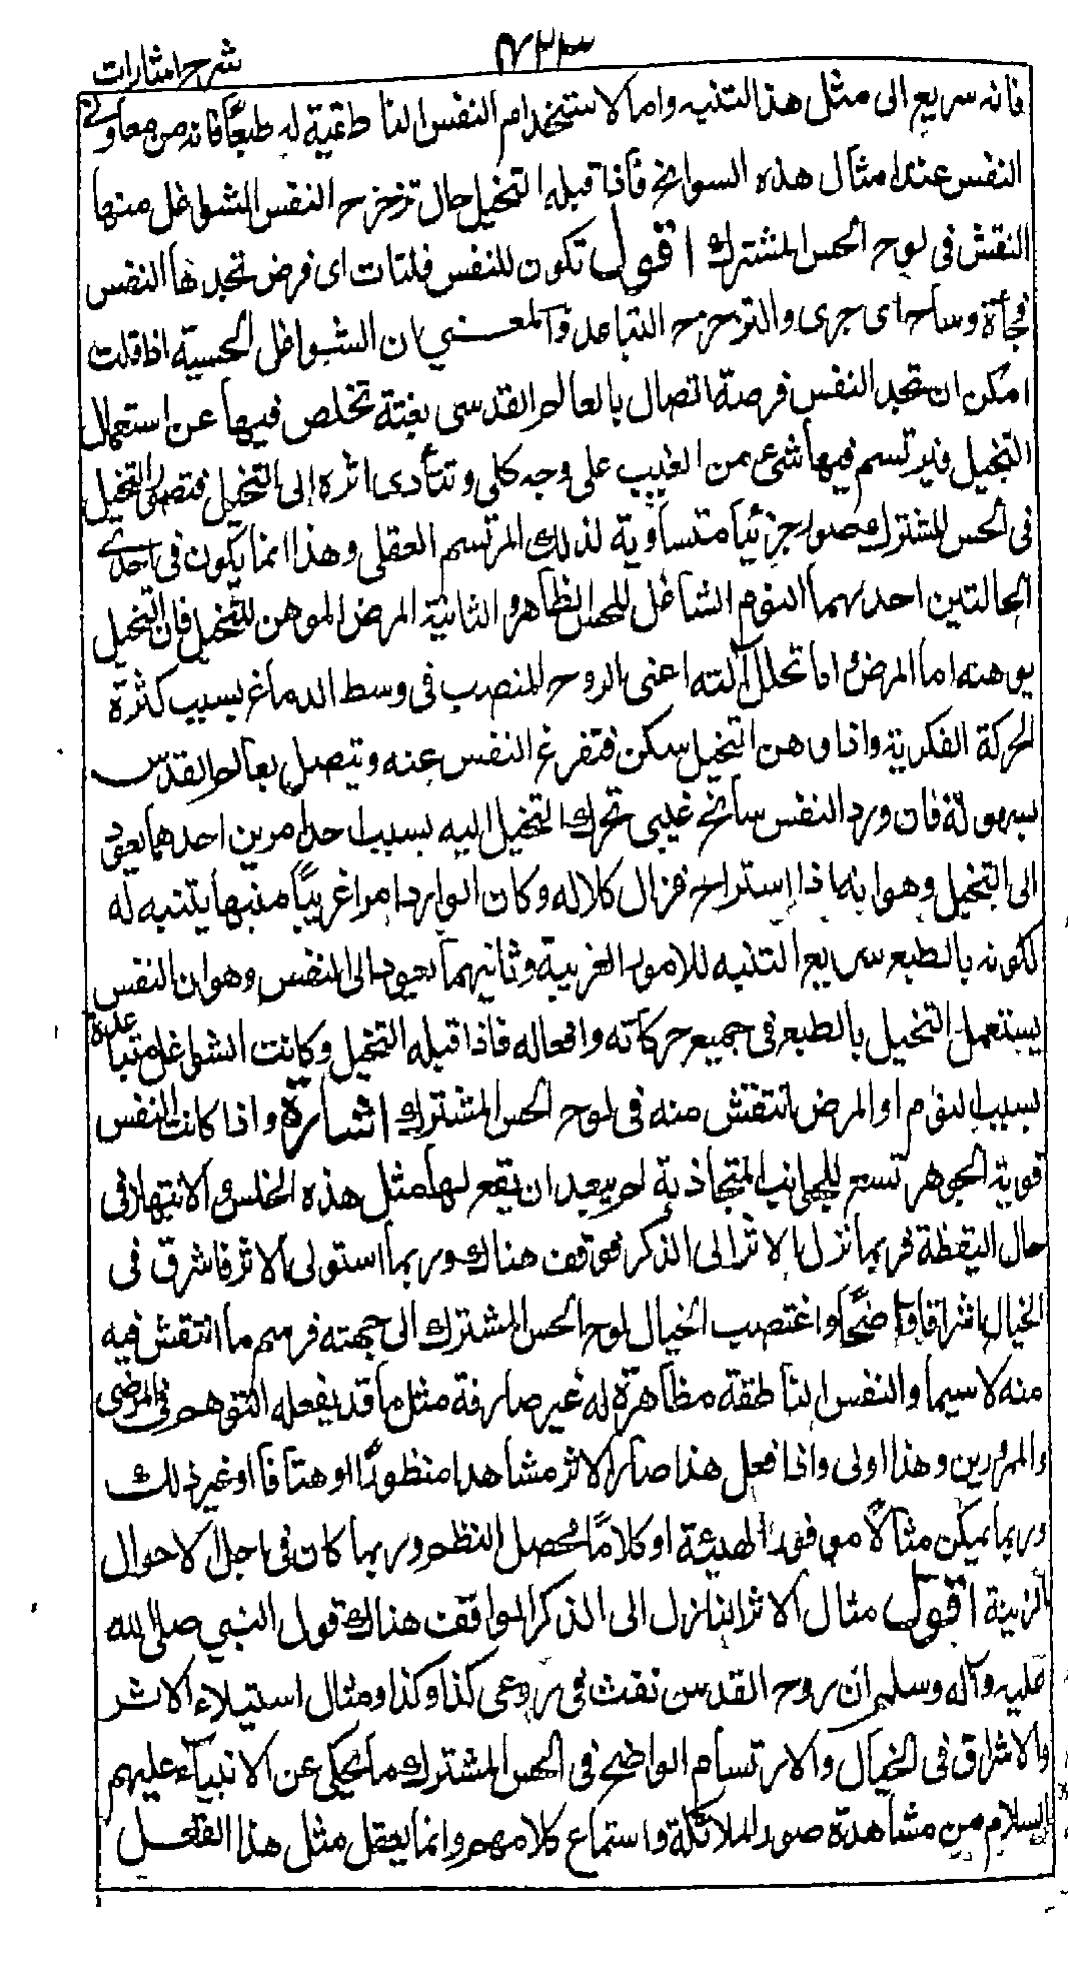 شرح اشارات
۴۲۳
فانه سريع الى مثل هذا التنبيه واما لاستخدام النفس الناطقية له طبعًا فانه من معاونى
النفس عند امثال هذه السوانح فاذا قبله التخيل حال تزحزح النفس الشواغل منها
النقش فى لوح الحس المشترك اقول تكون للنفس فلتات اى فرض تجدها النفس
فجأة وساح اى جرى والتزحزح التباعد والمعنى ان الشواغل الحسية اذا قلت
امكن ان تجد النفس فرصة اتصال بالعالم القدسى بغتة تخلص فيها عن استعمال
التخيل فيرتسم فيها شئ من الغيب على وجه كلى وتتأدى اثره الى التخيل فتصور التخيل
فى الحس المشترك صور جزئيا متساوية لذلك المرتسم العقلى وهذا انما يكون فى احدى
الحالتين احدهما النوم الشاغل للحس الظاهر والثانية المرض الموهن للتخيل فان التخيل
يوهنه اما المرض او تحلل آلته اعنى الروح المنصب فى وسط الدماغ بسبب كثرة
الحركة الفكرية واذا وهن التخيل سكن فتفرغ النفس عنه ويتصل بعالم القدس
بسهولة فان ورد النفس سانح غيبى تحرك التخيل اليه بسبب احد امرين احدهما يعود
الى التخيل وهو انه اذا استراح فزال كلاله وكان الوارد امرا غريبًا منبها يتنبه له
لكونه بالطبع سريع التنبه للامور الغريبة وثانيهما يعود الى النفس وهو ان النفس
يستعمل التخيل بالطبع فى جميع حركاته وافعاله فاذا قبله التخيل وكانت الشواغل متباعدة
بسبب النوم او المرض انتقش منه فى لوح الحس المشترك اشارة واذا كانت النفس
قوية الجوهر تسع للجوانب المتجاذبة لم يبعد ان يقع لها مثل هذه الخلس والانتهاز فى
حال اليقظة فربما نزل الاثر الى الذكر فوقف هناك وربما استولى الاثر فاشرق فى
الخيال اشراقا واضحًا واغتصب الخيال لوح الحس المشترك الى جهته فرسم ما انتقش فيه
منه لا سيما والنفس الناطقة مظاهرة له غير صارفة مثل ما قد يفعله التوهم فى المرضى
والممرورين وهذا اولى واذا فعل هذا صار الاثر مشاهدا منظورًا او هتافا او غير ذلك
وربما يمكن مثالًا موفور الهيئة او كلامًا محصل النظم وربما كان فى اجل الاحوال
الزينة اقول مثال الاثر النازل الى الذكر الواقف هناك قول النبى صلى الله
عليه وآله وسلم ان روح القدس نفث فى روعى كذا وكذا ومثال استيلاء الاثر
والاشراق فى الخيال والارتسام الواضح فى الحس المشترك ما يحكى عن الانبياء عليهم
السلام من مشاهدة صور الملائكة واستماع كلامهم وانما يعقل مثل هذا الفعل